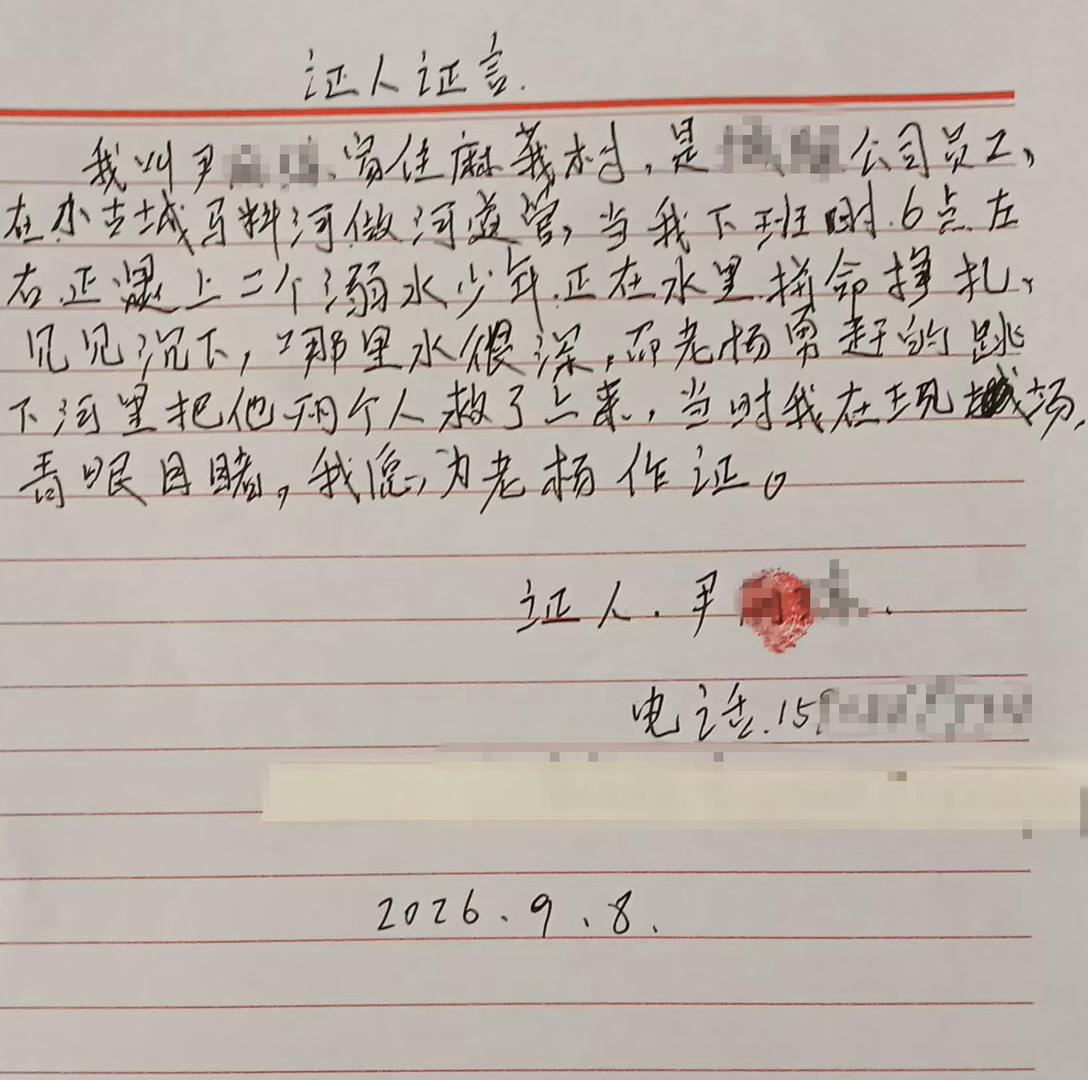 证人证言.
我叫尹 家住麻莪村,是 公司员工,
在小古城马料河做河道管,当我下班时.6点左
右.正遇上二个溺水少年.正在水里拼命挣扎,
见见沉下,那里水很深,而老杨勇赶的跳
下河里把他两个人救了上来,当时我在现场,
青眼目睹,我愿为老杨作证。
证人.尹
电话.15
2026.9.8.